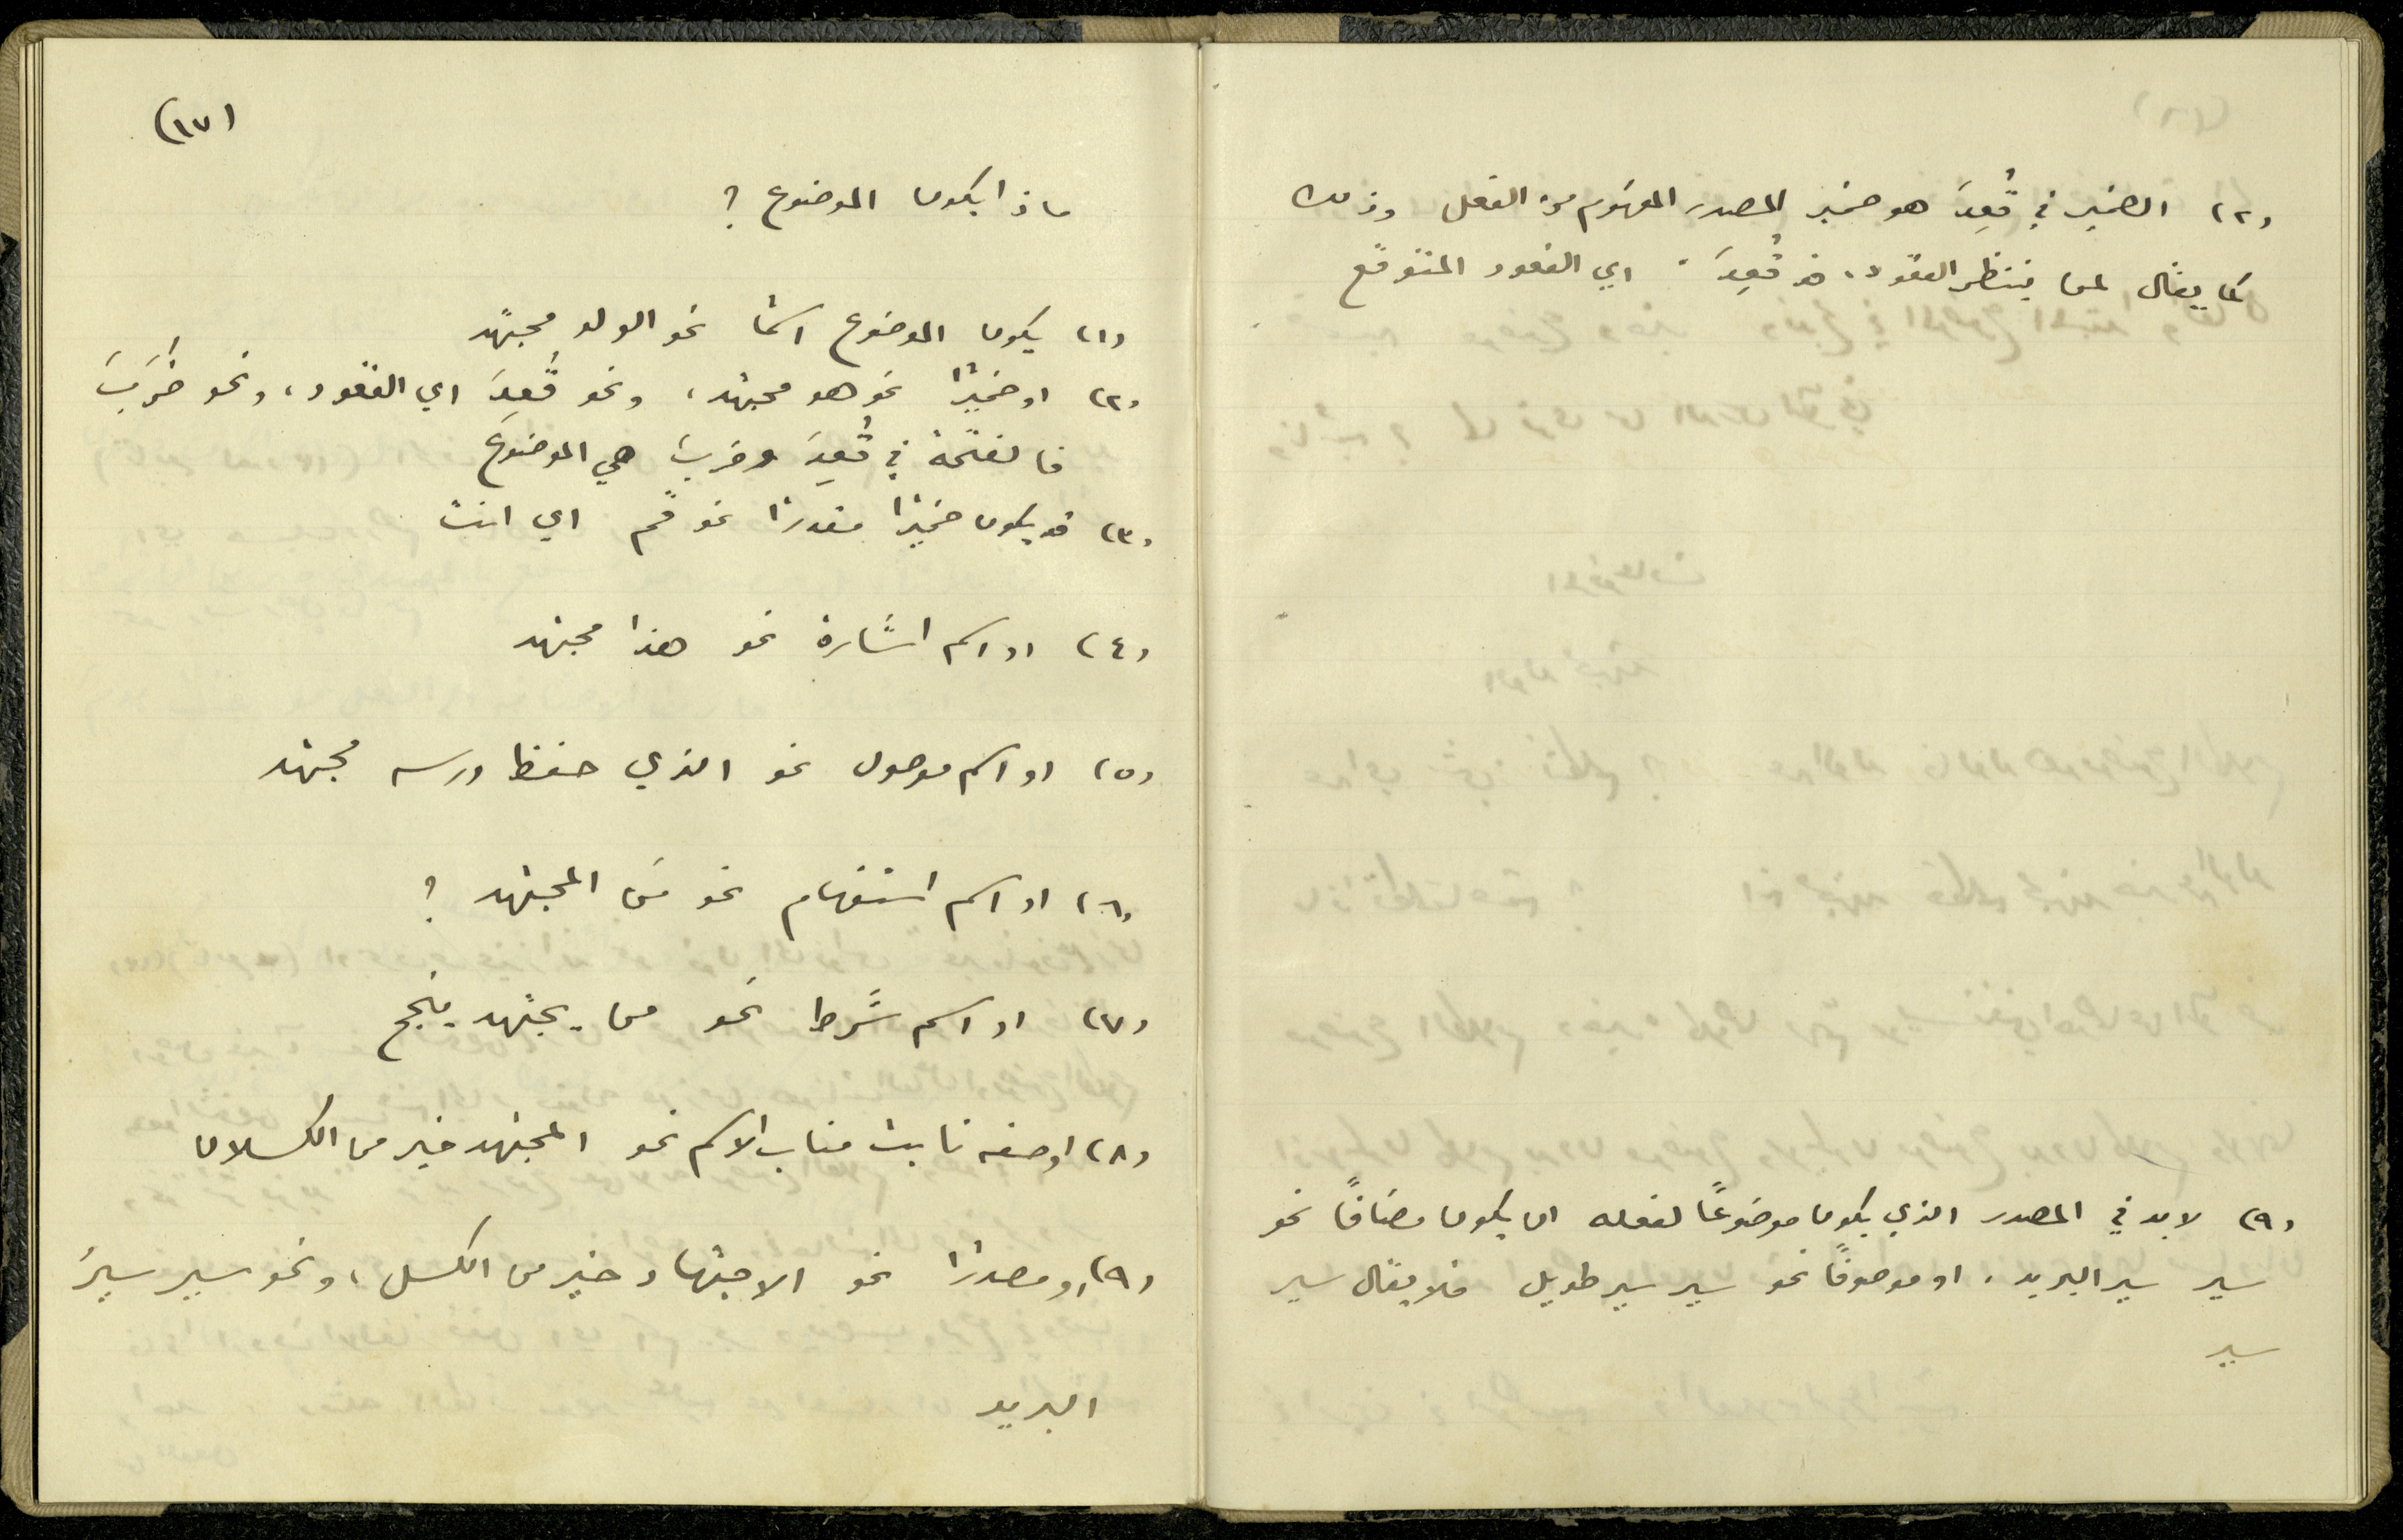 (٢) الضمير في قُعِدَ هو ضمير المصدر المفهوم من الفعل وذلك
كما يقال لمن ينتظر القعود، قد قُعِدَ. اي القعود المتوقع
(٩) لا بد في المصدر الذي يكون موضوعًا لفعله ان يكون مضافًا نحو
سير سير البريد. او موصوفًا نحو سير سير طويل فلا يقال سير
سير
(١٧)
ماذا يكون الموضوع ؟
(١) يكون الموضوع اسمًا نحو الولد مجتهد
(٢) او ضميرًا نحو هو مجتهد، ونحو قُعِدَ اي القعود، ونحو ضَرَبتَ
فالفتحة في قُعِدَ وضربتَ هي الموضوع
(٣) قد يكون ضميرًا مقدرًا نحو قم اي انت
(٤) او اسم اشارة نحو هذا مجتهد
(٥) او اسم موصول نحو الذي حفظ درسه مجتهد
(٦) او اسم استفهام نحو مَن المجتهد ؟
(٧) او اسم شرط نحو من يجتهد ينجح
(٨) او صفه نابت مناب الاسم نحو المجتهد خير من الكسلان
(٩) او مصدرًا نحو الاجتهاد خير من الكسل، ونحو سير سيرَ
البريد